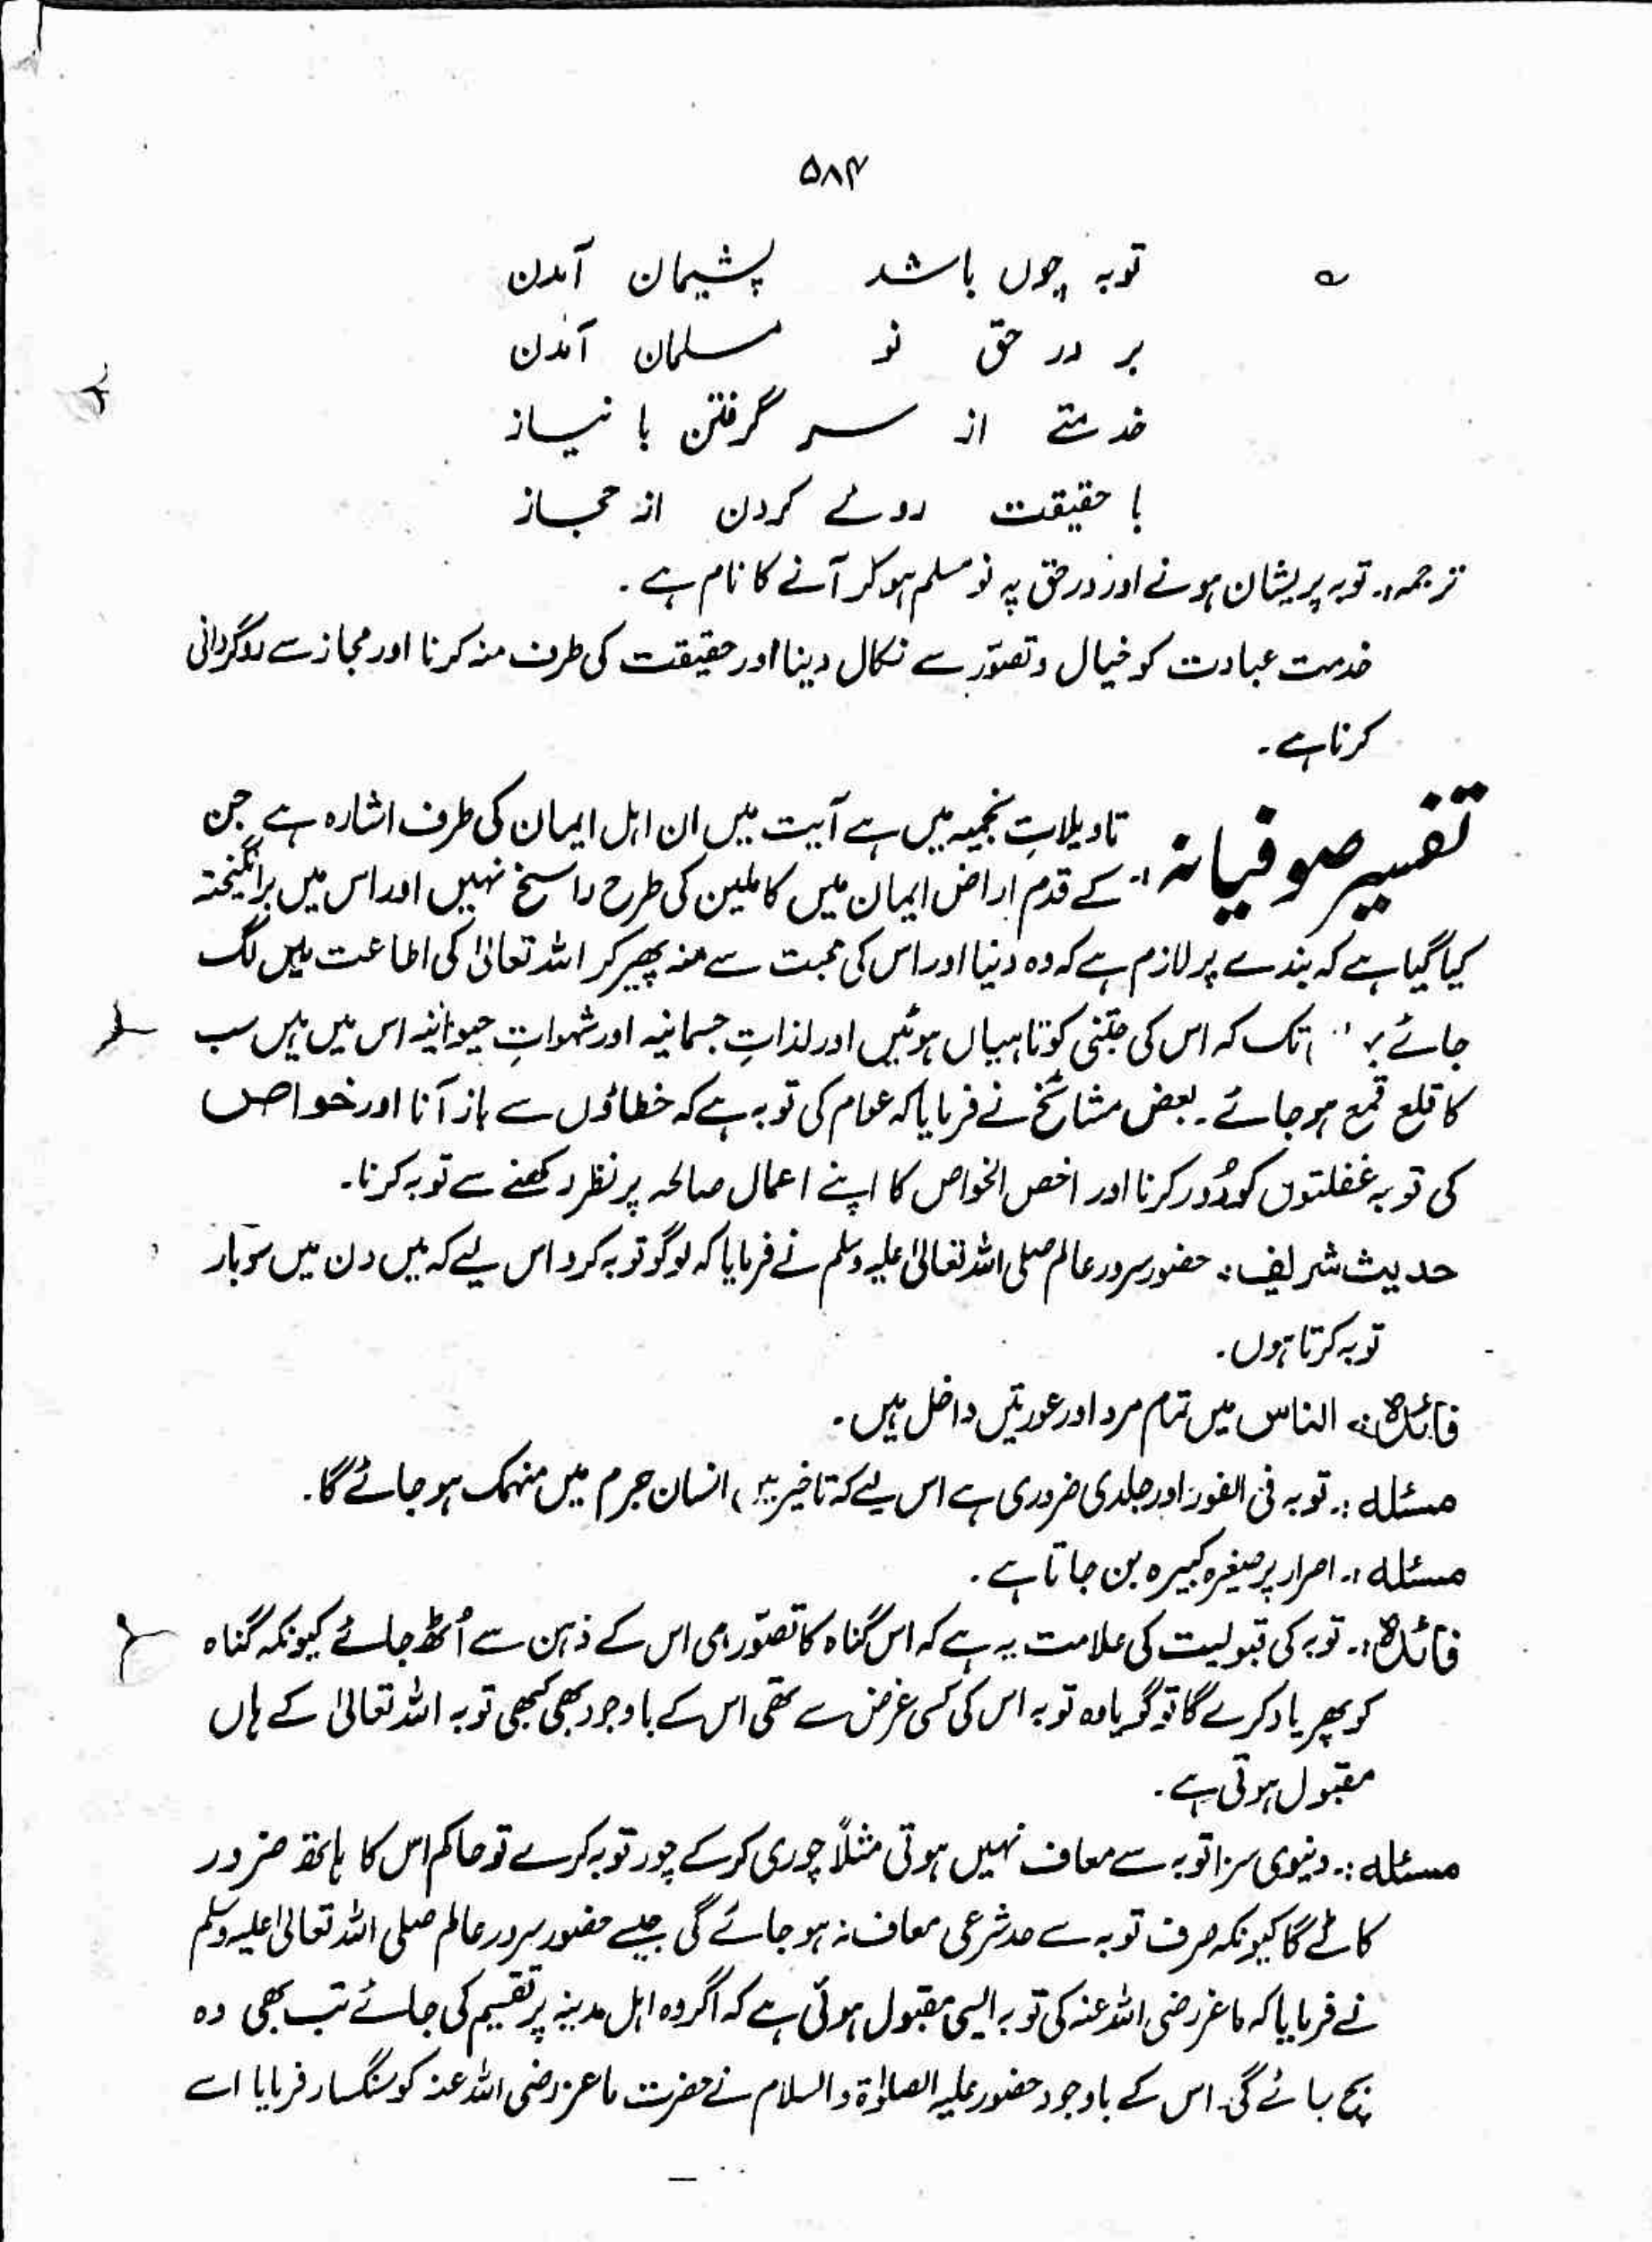 ۵۸۴
؎ توبہ چوں باشد پشیمان آمدن
بر در حق نو مسلمان آمدن
خدمتے از سر گرفتن با نیاز
با حقیقت روئے کردن از مجاز
ترجمہ:۔ توبہ پریشان ہونے اور در حق پہ نو مسلم ہو کر آنے کا نام ہے۔
خدمت عبادت کو خیال و تصوّر سے نکال دینا اور حقیقت کی طرف منہ کرنا اور مجاز سے روگردانی
کرنا ہے۔
تفسیر صوفیانہ:۔ تاویلاتِ نجمیہ میں ہے آیت میں ان اہل ایمان کی طرف اشارہ ہے جن
کے قدم اراضِ ایمان میں کاملین کی طرح راسخ نہیں اور اس میں برانگیختہ
کیا گیا ہے کہ بندے پر لازم ہے کہ وہ دنیا اور اس کی محبت سے منہ پھیر کر اللہ تعالیٰ کی اطاعت میں لگ
جائے تک کہ اس کی جتنی کوتاہیاں ہوئیں اور لذاتِ جسمانیہ اور شہواتِ حیوانیہ اس میں ہیں سب
کا قلع قمع ہو جائے۔ بعض مشائخ نے فرمایا کہ عوام کی توبہ ہے کہ خطاؤں سے باز آنا اور خواص
کی توبہ غفلتوں کو دُور کرنا اور اخص الخواص کا اپنے اعمال صالحہ پر نظر رکھنے سے توبہ کرنا۔
حدیث شریف:۔ حضور سرور عالم صلی اللہ تعالیٰ علیہ وسلم نے فرمایا کہ لوگو توبہ کرو اس لیے کہ میں دن میں سو بار
توبہ کرتا ہوں۔
فائدہ:۔ الناس میں تمام مرد اور عورتیں داخل ہیں۔
مسئلہ:۔ توبہ فی الفور اور جلدی ضروری ہے اس لیے کہ تاخیر میں انسان جرم میں منہمک ہو جائے گا۔
مسئلہ:۔ اصرار پر صغیرہ کبیرہ بن جاتا ہے۔
فائدہ:۔ توبہ کی قبولیت کی علامت یہ ہے کہ اس گناہ کا تصوّر ہی اس کے ذہن سے اُٹھ جائے کیونکہ گناہ
کو پھر یاد کرے گا تو گویا وہ توبہ اس کی کسی غرض سے تھی اس کے باوجود بھی کبھی توبہ اللہ تعالیٰ کے ہاں
مقبول ہوتی ہے۔
مسئلہ:۔ دنیوی سزا توبہ سے معاف نہیں ہوتی مثلاً چوری کر کے چور توبہ کرے تو حاکم اس کا ہاتھ ضرور
کاٹے گا کیونکہ صرف توبہ سے حد شرعی معاف نہ ہو جائے گی جیسے حضور سرور عالم صلی اللہ تعالیٰ علیہ وسلم
نے فرمایا کہ ماعز رضی اللہ عنہ کی توبہ ایسی مقبول ہوئی ہے کہ اگر وہ اہل مدینہ پر تقسیم کی جائے تب بھی وہ
بچ جائے گی۔ اس کے باوجود حضور علیہ الصلوٰۃ والسلام نے حضرت ماعز رضی اللہ عنہ کو سنگسار فرمایا اسے